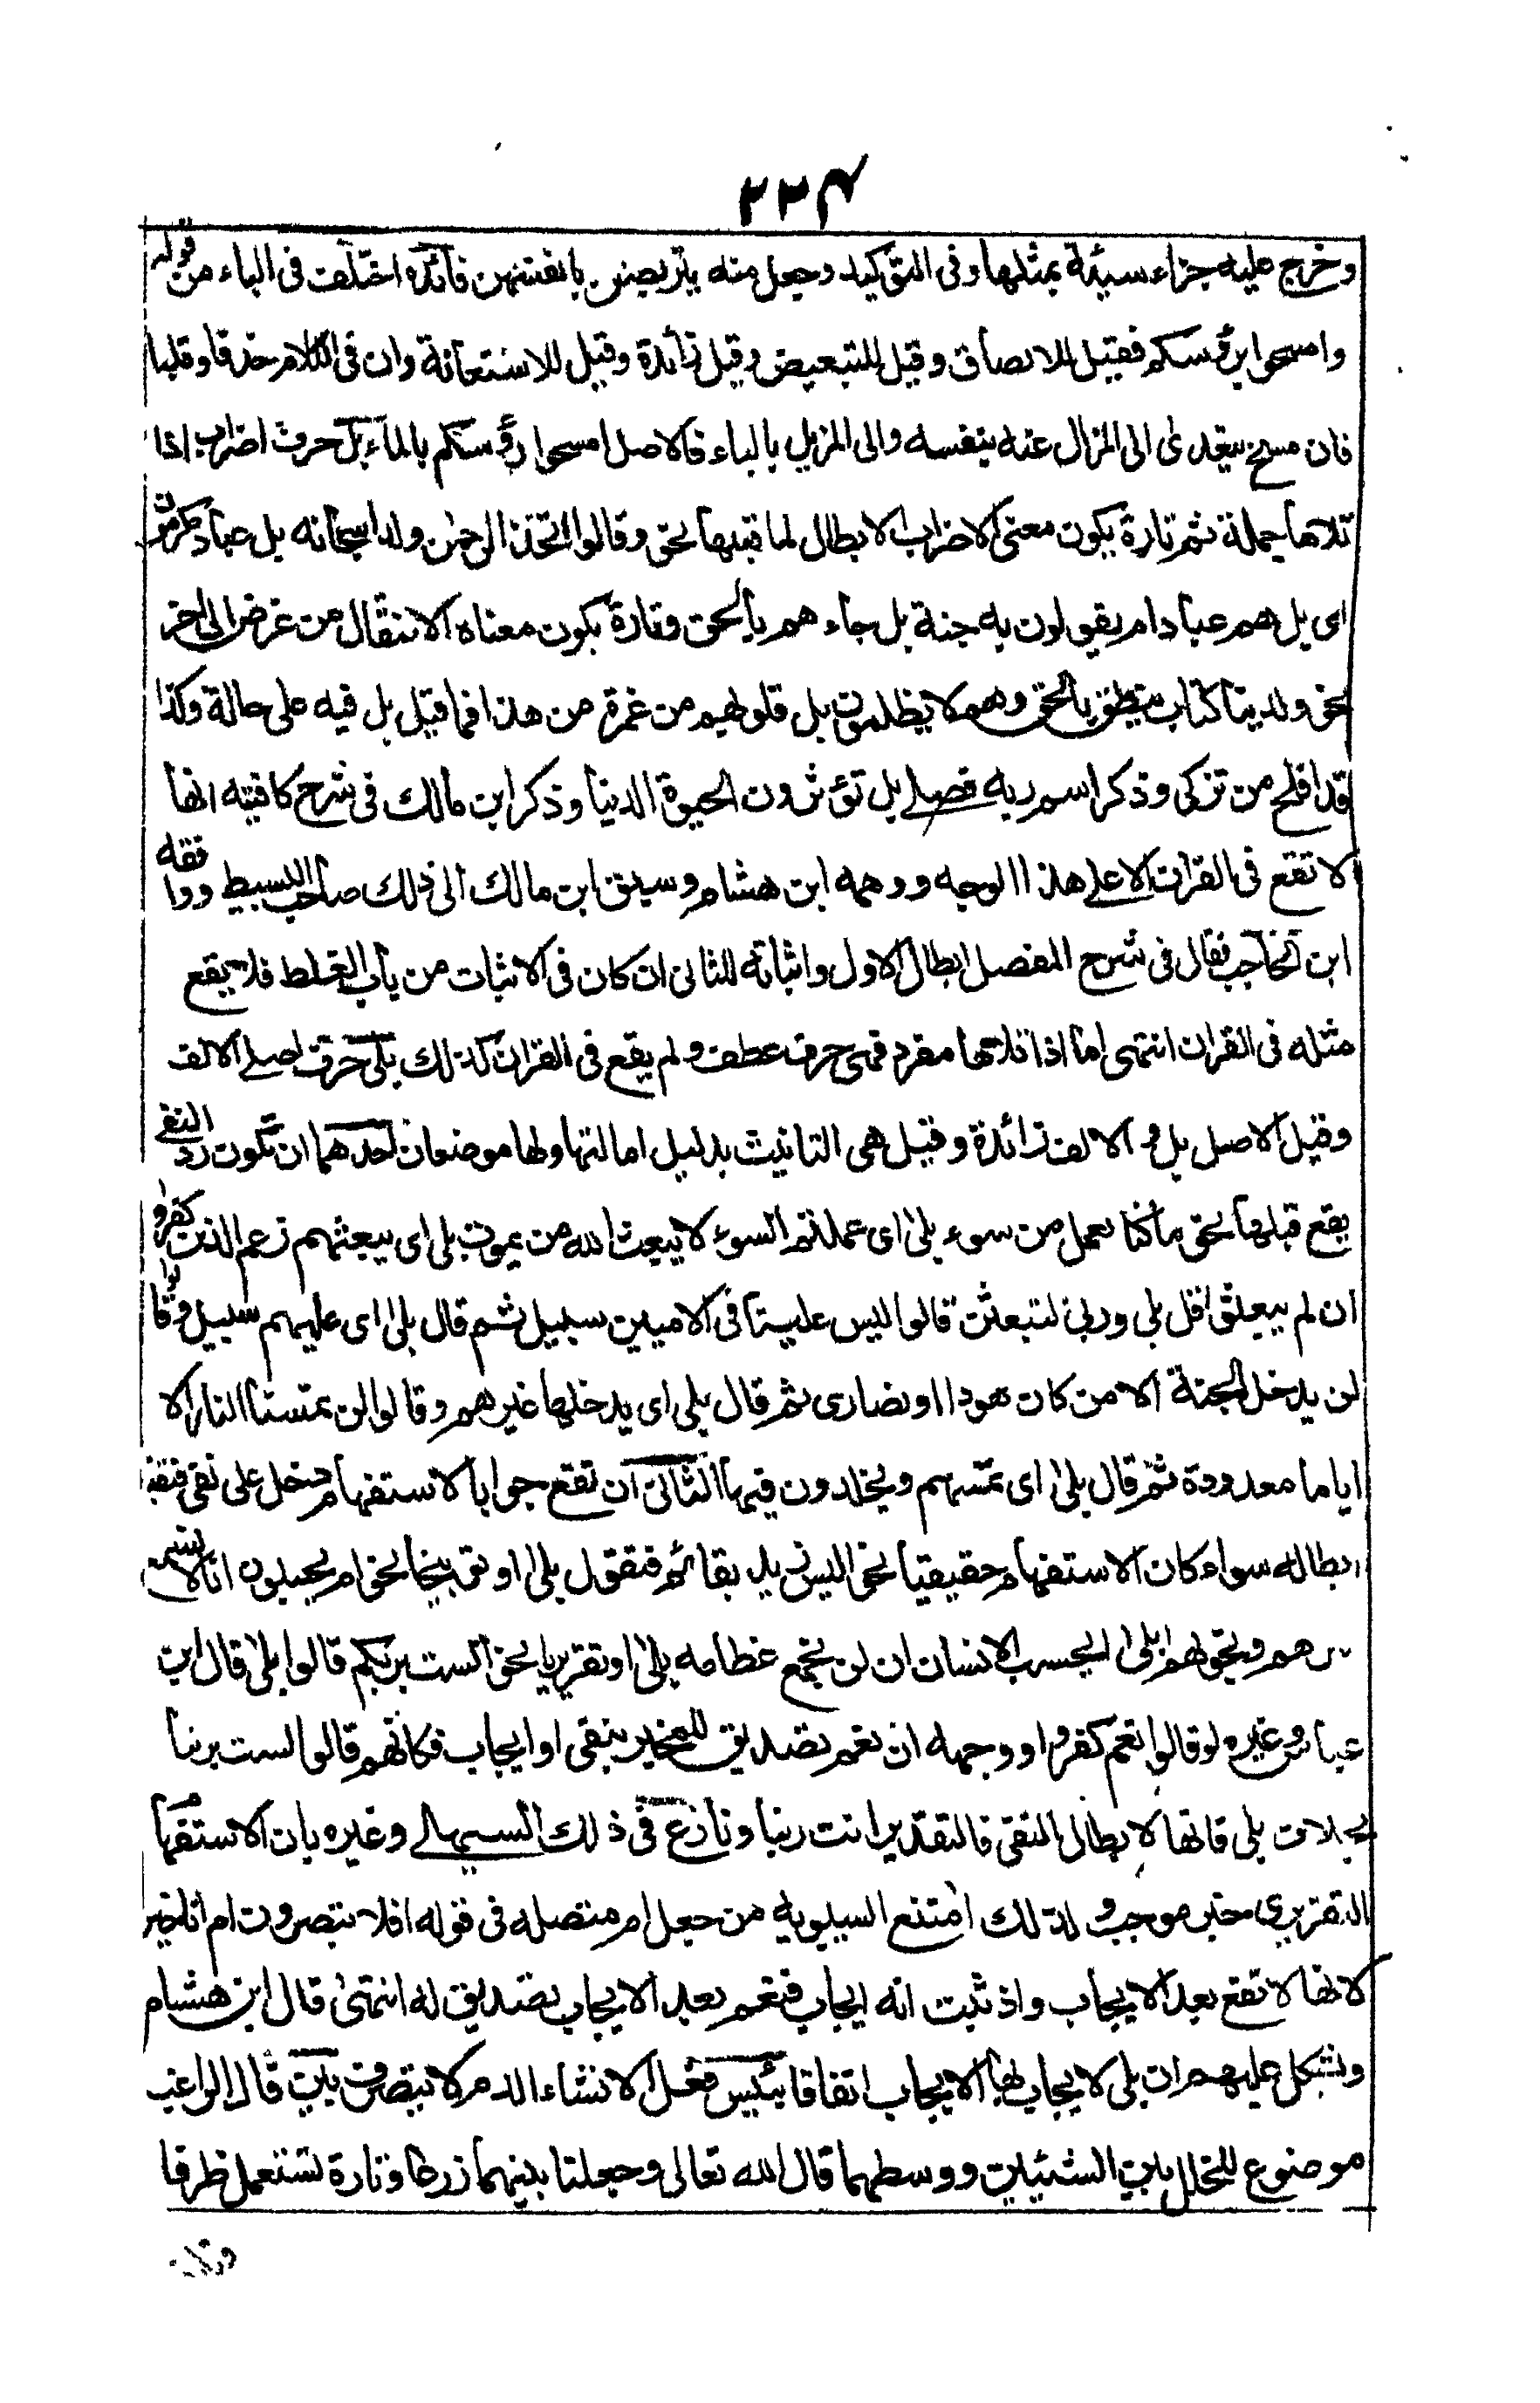 ٢٢٤
وخرج عليه جزاء سيئة بمثلها وفى التوكيد وجعل منه يتربصن بانفسهن فائدة اختلف فى الباء من قوله
وامسحوا برؤسكم فقيل للالصاق وقيل للتبعيض وقيل زائدة وقيل للاستعانة وان فى الكلام حذفا وقلبا
فان مسح يتعدى الى المزال عنه بنفسه والى المزيل بالباء فالاصل امسحوا رؤسكم بالماء بل حرف اضراب اذا
تلاها جملة ثم تارة يكون معنى الاضراب الابطال لما قبلها نحو وقالوا اتخذ الرحمن ولدا سبحانه بل عباد مكرمون
اى بل هم عباد ام يقولون به جنة بل جاء هم بالحق وتارة يكون معناه الانتقال من غرض الى اخر
نحو ولدينا كتاب ينطق بالحق وهم لا يظلمون بل قلوبهم من غمرة من هذا فما قبل بل فيه على حالة وكذا
قد افلح من تزكى وذكر اسم ربه فصلے بل تؤثرون الحيوة الدنيا وذكر ابن مالك فى شرح كافيته انها
لا تقع فى القران الا علے هذا الوجه ووهمه ابن هشام وسبق ابن مالك الى ذلك صاحب البسيط ووافقه
ابن الحاجب فقال فى شرح المفصل ابطال الاول واثباته للثانى ان كان فى الاثبات من باب الغلط فلا يقع
مثله فى القران انتهى اما اذا تلاها مفرد فهى حرف عطف ولم يقع فى القران كذلك بلى حرف اصلے الالف
وقيل الاصل بل و الالف زائدة وقيل هى التانيث بدليل امالتها ولها موضعان احدهما ان تكون رد النفى
يقع قبلها نحو ما كنا نعمل من سوء بلى اى عملتم السوء لا يبعث الله من يموت بلى اى يبعثهم زعم الذين كفروا
ان لم يبعثوا قل بلى وربى لتبعثن قالوا ليس علينا فى الاميين سبيل ثم قال بلى اى عليهم سبيل وقالوا
لن يدخل الجنة الا من كان هودا او نصارى ثم قال بلى اى يدخلها غيرهم وقالوا لن تمسنا النار الا
اياما معدودة ثم قال بلى اى تمسهم ويخلدون فيها الثانى ان تقع جوابا لاستفهام دخل على نفى فتفيد
ابطاله سواء كان الاستفهام حقيقيا نحو اليس زيد بقائم فتقول بلى او توبيخا نحو ام يحسبون انا لا نسمع
سرهم ونجوٰهم بلى ايحسب الانسان ان لن نجمع عظامه بلى او تقريريا نحو الست بربكم قالوا بلى قال ابن
عباس وغيره لو قالوا نعم كفروا ووجهه ان نعم تصديق للمخبر بنفى او ايجاب فكانهم قالوا لست بربنا
بخلاف بلى فانها لابطال النفى فالتقدير انت ربنا ونازع فى ذلك السهيلے وغيره بان الاستفهام
التقريرى خبر موجب ولذلك امتنع السيبويه من جعل ام متصله فى قوله افلا تبصرون ام انا خير
لانها لا تقع بعد الايجاب واذ ثبت انه ايجاب فنعم بعد الايجاب تصديق له انتهى قال ابن هشام
ويشكل عليهم ان بلى لا يجاب بها الايجاب اتفاقا بئس فعل لانشاء الذم لا يتصرف بين قال الراغب
موضوع للخلل بين الشيئين ووسطهما قال الله تعالى وجعلنا بينهما زرعا وتارة تستعمل ظرفا